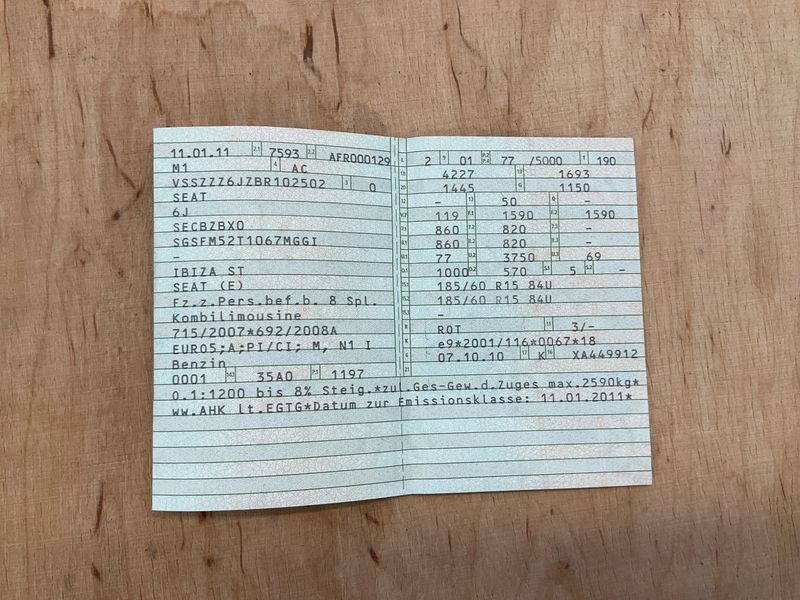 11.01.11 2.1 7593 2.2 AFR000129
M1 4 AC
VSSZZZ6JZBR102502 3 0
SEAT
6J
SECBZBX0
SGSFM52T1067MGGI
-
IBIZA ST
SEAT (E)
Fz.z.Pers.bef.b. 8 Spl.
Kombilimousine
715/2007*692/2008A
EURO5;A;PI/CI; M, N1 I
Benzin
0001 14.1 35A0 P.1 1197
L 2 9 01 P.2 P.4 77 /5000 T 190
18 4227 19 1693
20 1445 G 1150
12 - 13 50 Q -
V.7 119 F.1 1590 F.2 1590
7.1 860 7.2 820 7.3 -
8.1 860 8.2 820 8.3 -
U.1 77 U.2 3750 U.3 69
O.1 1000 O.2 570 S.1 5 S.2 -
15.1 185/60 R15 84U
15.2 185/60 R15 84U
15.3 -
R ROT 11 3/-
K e9*2001/116*0067*18
6 07.10.10 17 K 16 XA449912
21
0.1:1200 bis 8% Steig.*zul.Ges-Gew.d.Zuges max.2590kg*
ww.AHK lt.EGTG*Datum zur Emissionsklasse: 11.01.2011*